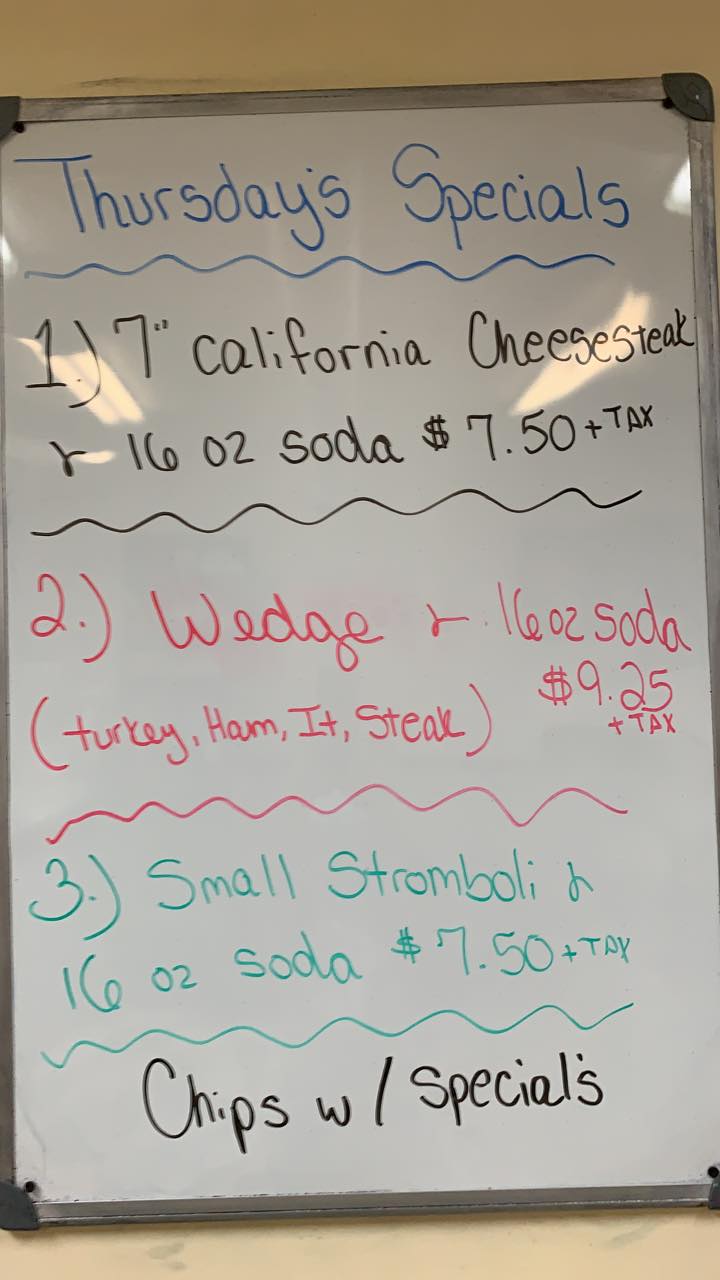 Thursday's Specials
1.) 7" California Cheesesteak
& 16 oz soda $7.50 + TAX
2.) Wedge & 16 oz soda
$9.25
+ TAX
(turkey, Ham, It, Steak)
3.) Small Stromboli &
16 oz soda $7.50 + TAX
Chips w/ Special's